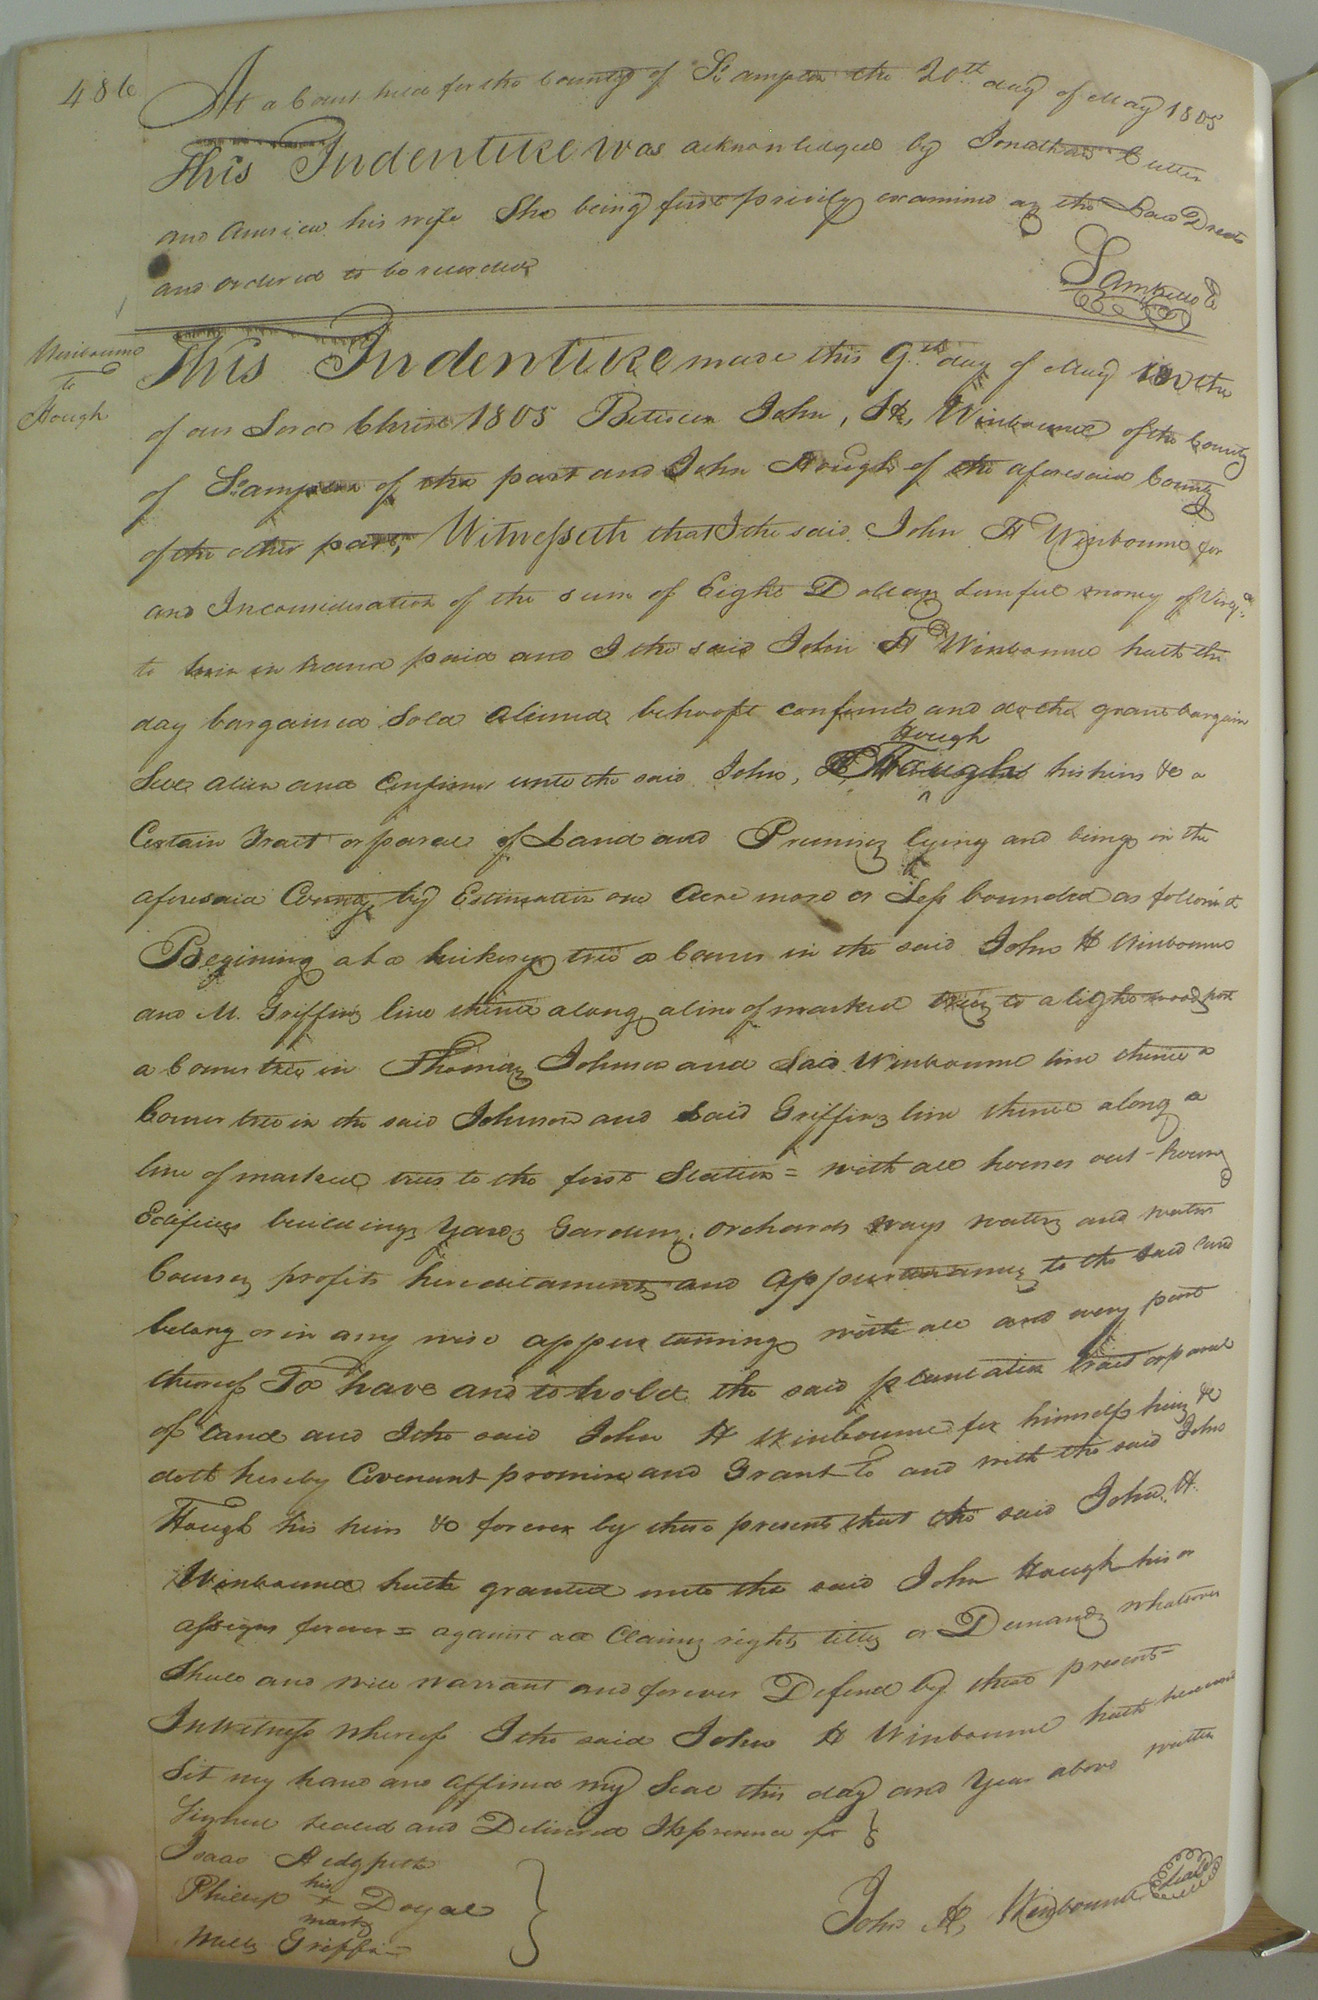 486
At a Court held for the County of S.ampton the 20th day of May 1805
This Indenture was acknowledged by Jonathan Cutler
and his wife She being first privily examined as the Law Directs
and ordered to be recorded
Winbourne
To
Hough
This Indenture made this 9th day of May in the
of our Lord Christ 1805 Between John, H, Winbourne of the County
of S.ampton of the part and John Hough of the aforesaid County
of the other part, Witnesseth that I the said John H Winbourne for
and Inconsideration of the sum of Eight Dollars Lawful money of Virga
to him in hand paid and I the said John H Winbourne hath this
day bargained Sold aliened behooft confirmed and do the grant bargain
Hough
Sell alien and Confirm unto the said John, his heirs &c a
Certain Tract or parcel of Land and Premises lying and being in the
aforesaid County by Estimation one acre more or Less bounded as follows
Begining at a hickory tree a Corner in the said John H Winbourne
and M. Griffins line thence along a line of marked trees to a light wood post
a Corner tree in Thomas Johnson and Said Winbourne line thence a
Corner tree in the said Johnson and Said Griffins line thence along a
line of marked trees to the first Station = with all houses out-houses
Edifices buildings Yards Gardens, orchards ways waters and water
Courses profits hereditaments and Appurtenances to the said land
belong or in any wise appertaining with all and every part
thereof To have and to hold the said plantation tract or parcel
of land and I the said John H Winbourne for himself heirs &c
doth hereby Covenant promise and Grant To and with the said John
Hough his heirs &c forever by these presents that the said John. H.
Winbourne hath granted unto the said John Hough his or
assigns forever = against all Claims rights titles or Demands whatsoever
Shall and will warrant and forever Defend by these presents =
In Witness whereof I the said John H Winbourne hath hereunto
Set my hand and affixed my Seal this day and Year above written
Signed sealed and Delivered In presence of
Isaac Hedgpeth
his
Phillip + Doyal
mark
Mills Griffin
John H, Winbourne Seal